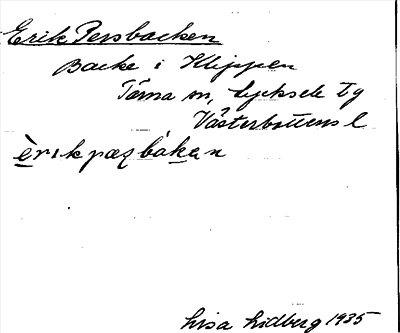 Erik Persbacken
Backe i Klippen
Tärna sn, Lycksele tg
Västerbottens l
èrikpæʂbàkan
Lisa Lidberg 1935